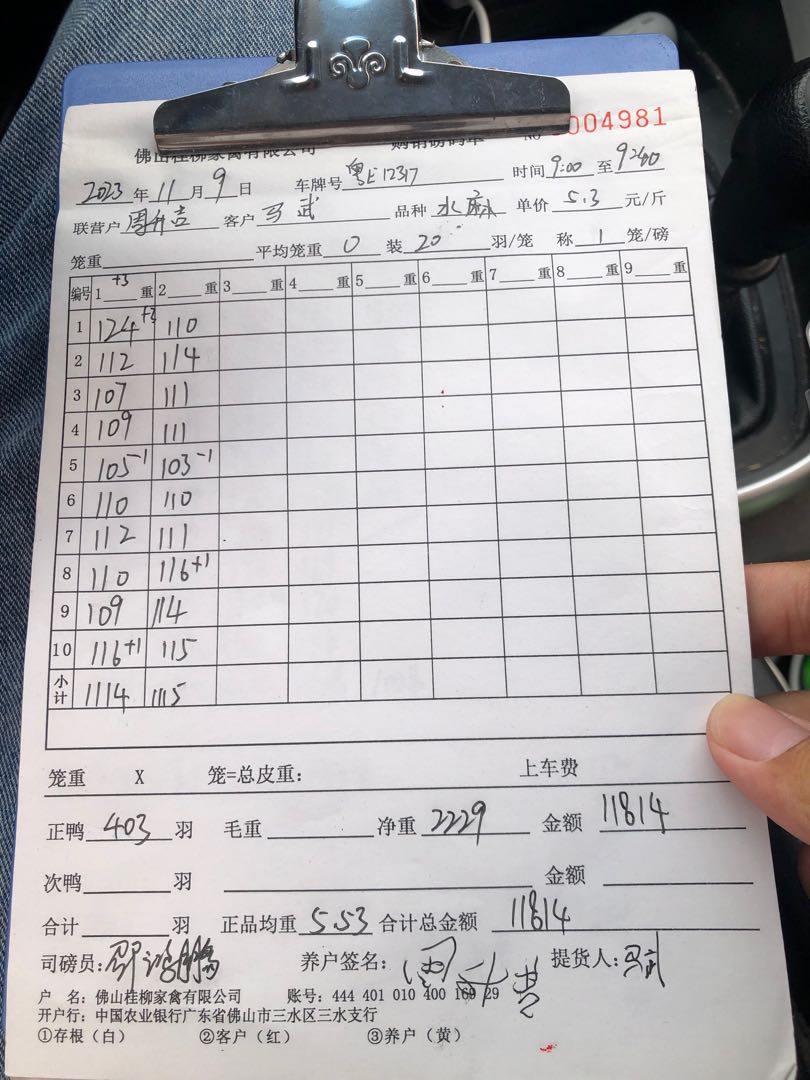 佛山桂柳家禽有限公司 购销磅码单 No 0004981
2023 年 11 月 9 日 车牌号 粤E12317 时间 9:00 至 9:40
联营户 周升吉 客户 马武 品种 水麻 单价 5.3 元/斤
笼重 平均笼重 0 装 20 羽/笼 称 1 笼/磅
编号 1 +3 重 2 重 3 重 4 重 5 重 6 重 7 重 8 重 9 重
1 124+3 110
2 112 114
3 107 111
4 109 111
5 105-1 103-1
6 110 110
7 112 111
8 110 116+1
9 109 114
10 116+1 115
小计 1114 1115
笼重 X 笼=总皮重: 上车费
正鸭 403 羽 毛重 净重 2229 金额 11814
次鸭 羽 金额
合计 羽 正品均重 5.53 合计总金额 11814
司磅员: 养户签名: 周升吉 提货人: 马武
户 名: 佛山桂柳家禽有限公司 账号: 444 401 010 400 169 29
开户行: 中国农业银行广东省佛山市三水区三水支行
①存根（白） ②客户（红） ③养户（黄）